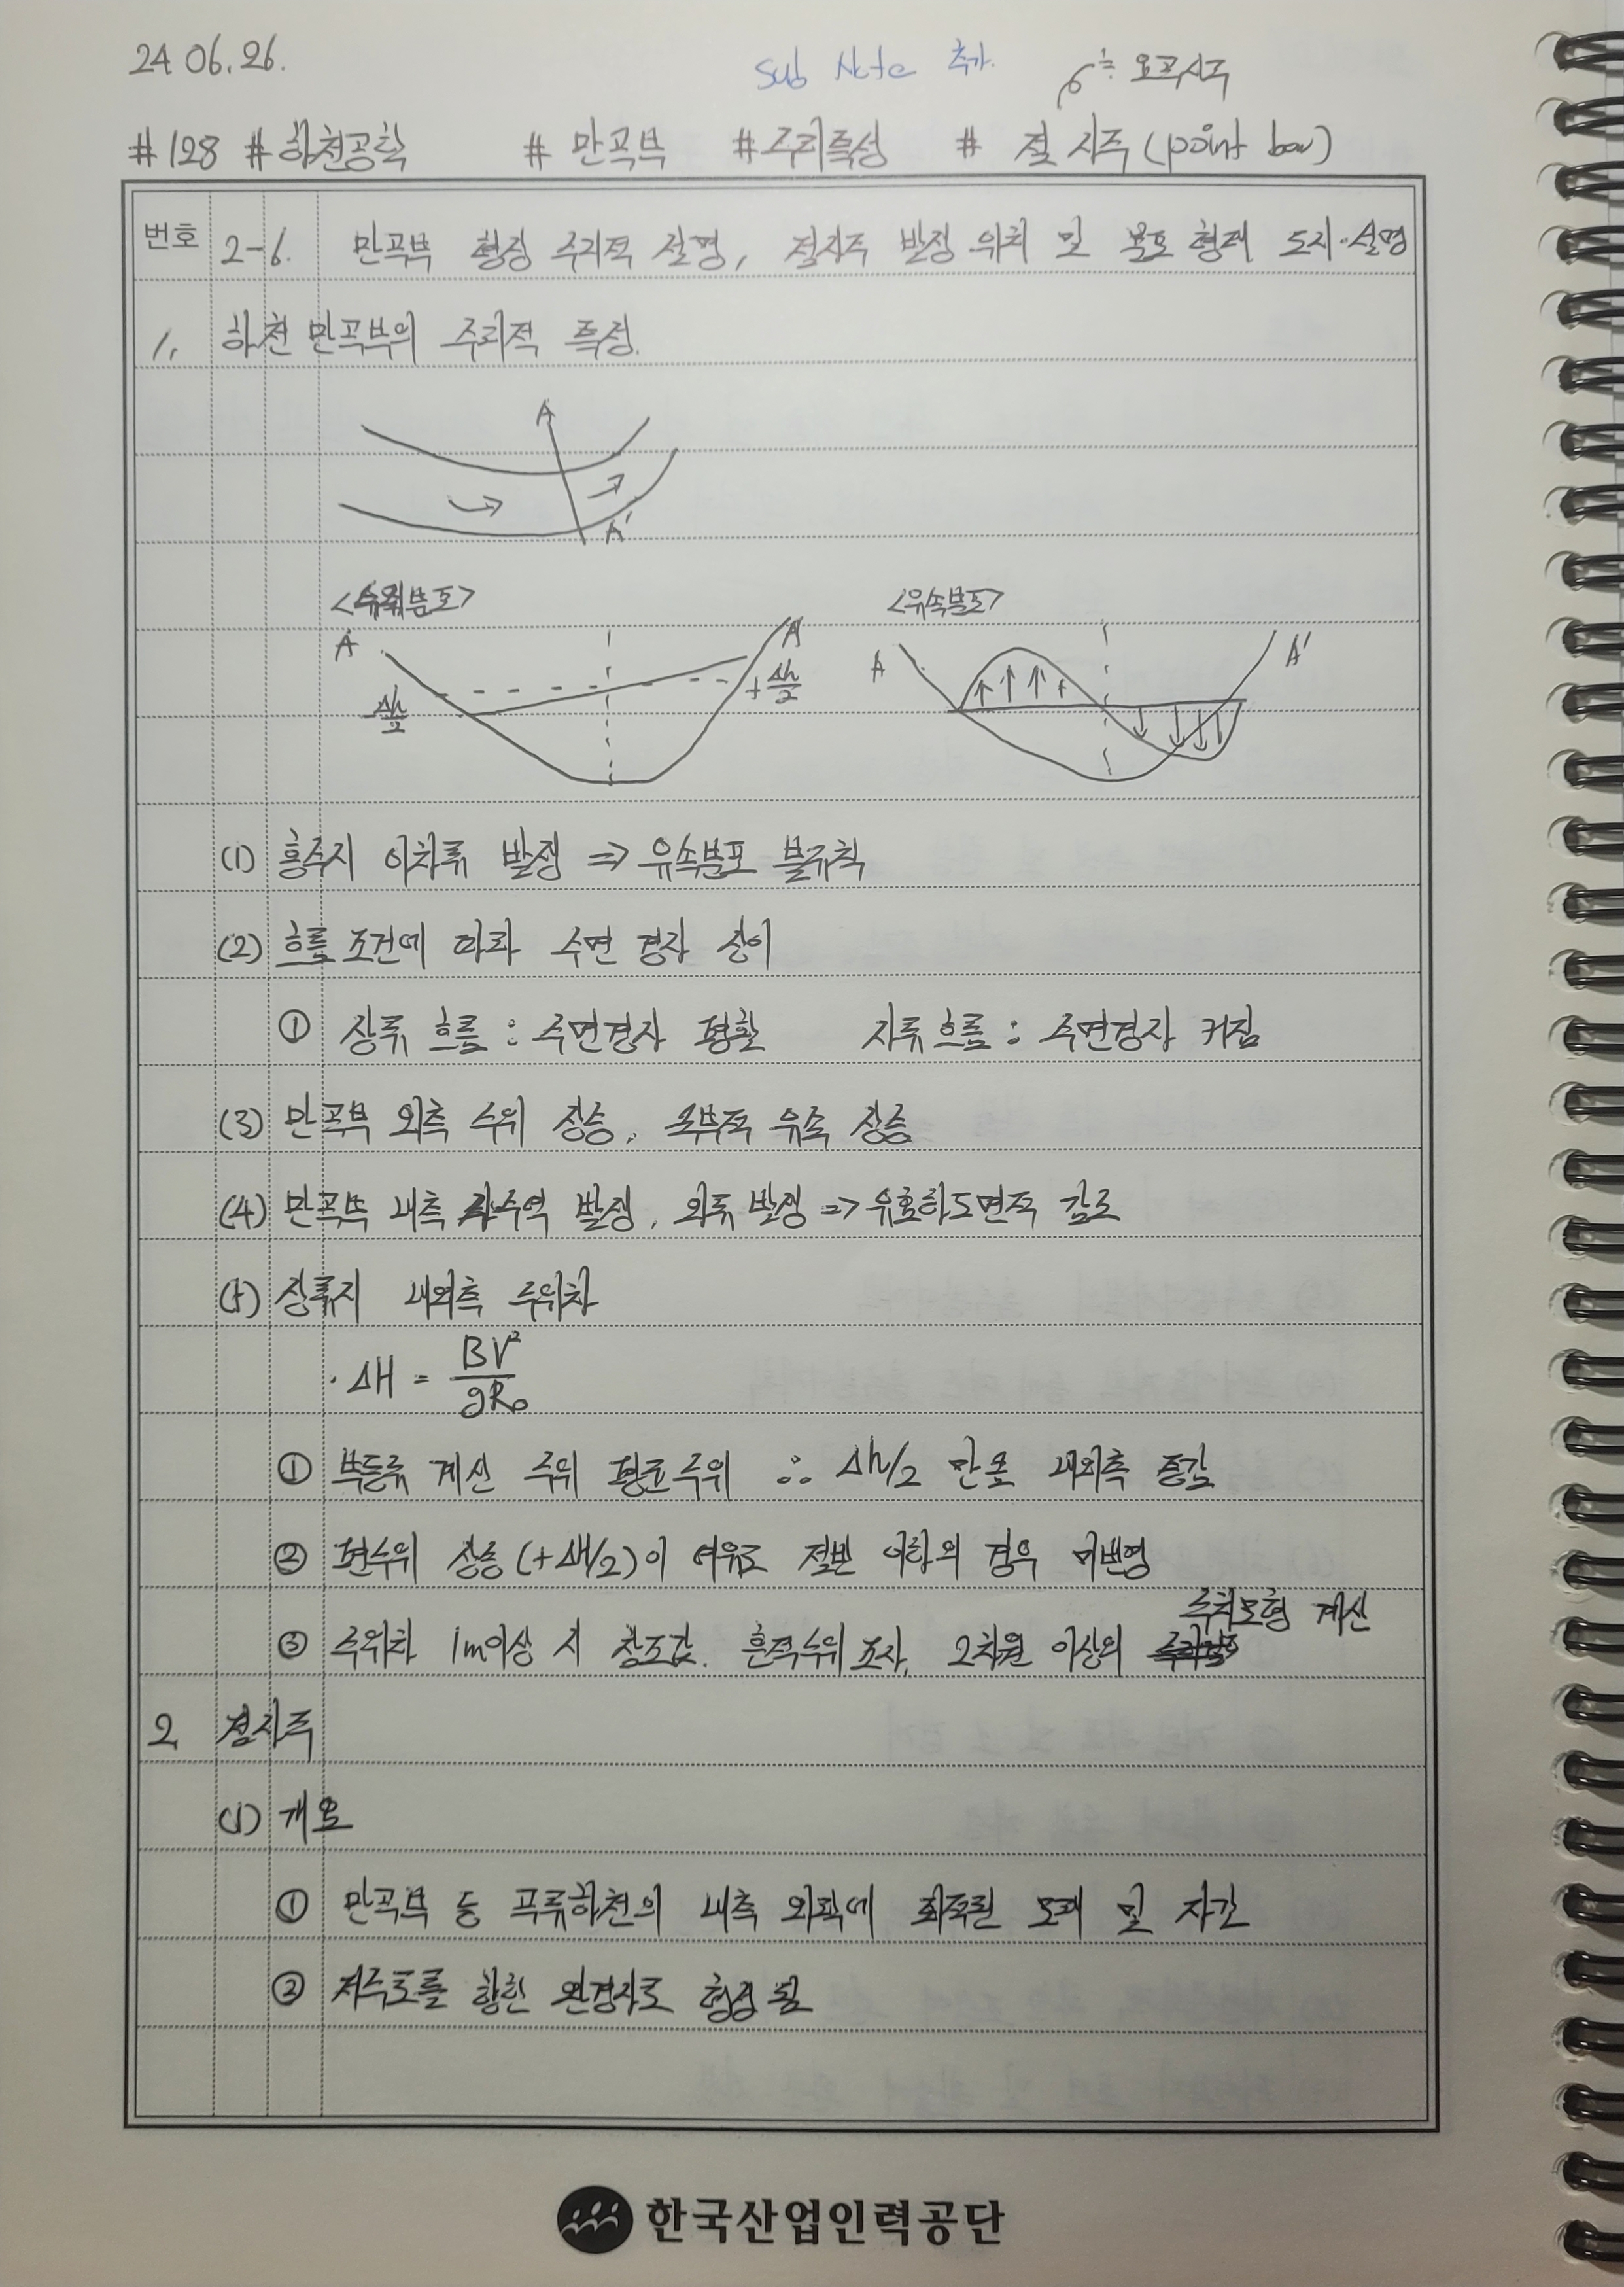 24.06.26.
Sub Note 추가.
≒ 요교사주
#128 #하천공학 # 만곡부 #수리특성 # 점사주 (point bar)
번호 2-6. 만곡부 형상 수리적 설명, 점사주 발생 위치 및 분포 형태 도시·설명
1. 하천 만곡부의 수리적 특성.
A
A'
<수위분포> <유속분포>
A A' A A'
-Δh/2 +Δh/2
(1) 홍수시 이차류 발생 => 유속분포 불규칙
(2) 흐름 조건에 따라 수면 경사 상이
① 상류 흐름 : 수면경사 평활 사류흐름 : 수면경사 커짐
(3) 만곡부 외측 수위 상승, 국부적 유속 상승
(4) 만곡부 내측 사수역 발생, 와류 발생 => 유효하도면적 감소
(5) 상류시 내외측 수위차
· ΔH = BV²/gR₀
① 부등류 계산 수위 평균수위 ∴ Δh/2 만큼 내외측 증감
② 편수위 상승 (+ΔH/2)이 여유고 절반 이하의 경우 미반영
③ 수위차 1m이상 시 참조값. 흔적수위 조사, 2차원 이상의 수치모형 계산
2 점사주
(1) 개요
① 만곡부 등 곡류하천의 내측 외곽에 퇴적된 모래 및 자갈
② 저수로를 향한 완경사로 형성됨
한국산업인력공단